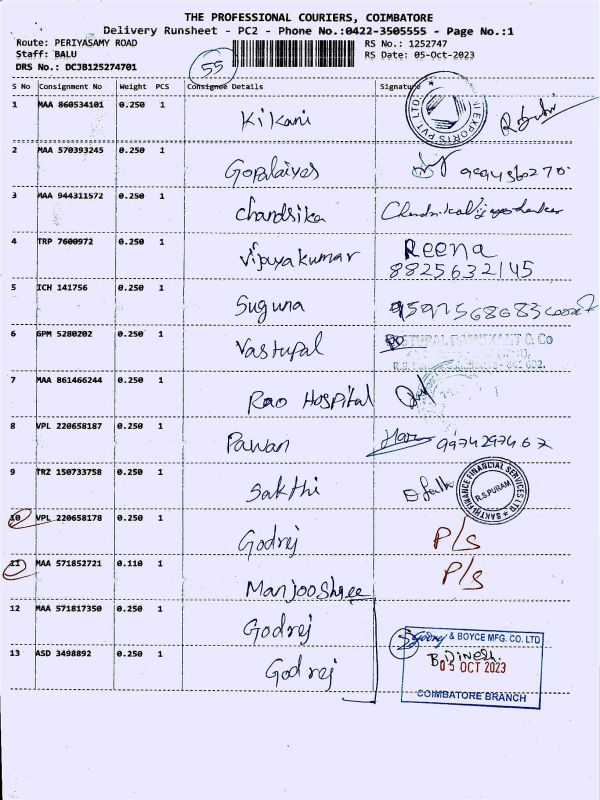 THE PROFESSIONAL COURIERS, COIMBATORE
Delivery Runsheet - PC2 - Phone No.:0422-3505555 - Page No.:1
Route: PERIYASAMY ROAD RS No.: 1252747
Staff: BALU RS Date: 05-Oct-2023
DRS No.: DCJB125274701
55
S No Consignment No Weight PCS Consignee Details Signature
1 MAA 860534101 0.250 1 Kikani
EXPORTS PVT. LTD
2 MAA 570393245 0.250 1
3 MAA 944311572 0.250 1 Chandrika
4 TRP 7600972 0.250 1 Vijayakumar Reena
8825632145
5 ICH 141756 0.250 1 Suguna
6 GPM 5280202 0.250 1 Vastupal
& Co
7 MAA 861466244 0.250 1 Rao Hospital
8 VPL 220658187 0.250 1 Pawan 9974297467
9 TRZ 150733758 0.250 1 Sakthi
SAKTHI FINANCE FINANCIAL SERVICES LTD
R.S.PURAM
10 VPL 220658178 0.250 1 Godrej P/s
11 MAA 571852721 0.110 1 Manjooshree P/s
12 MAA 571817350 0.250 1 Godrej
13 ASD 3498892 0.250 1 Godrej
Godrej & BOYCE MFG. CO. LTD
B. Dinesh
05 OCT 2023
COIMBATORE BRANCH